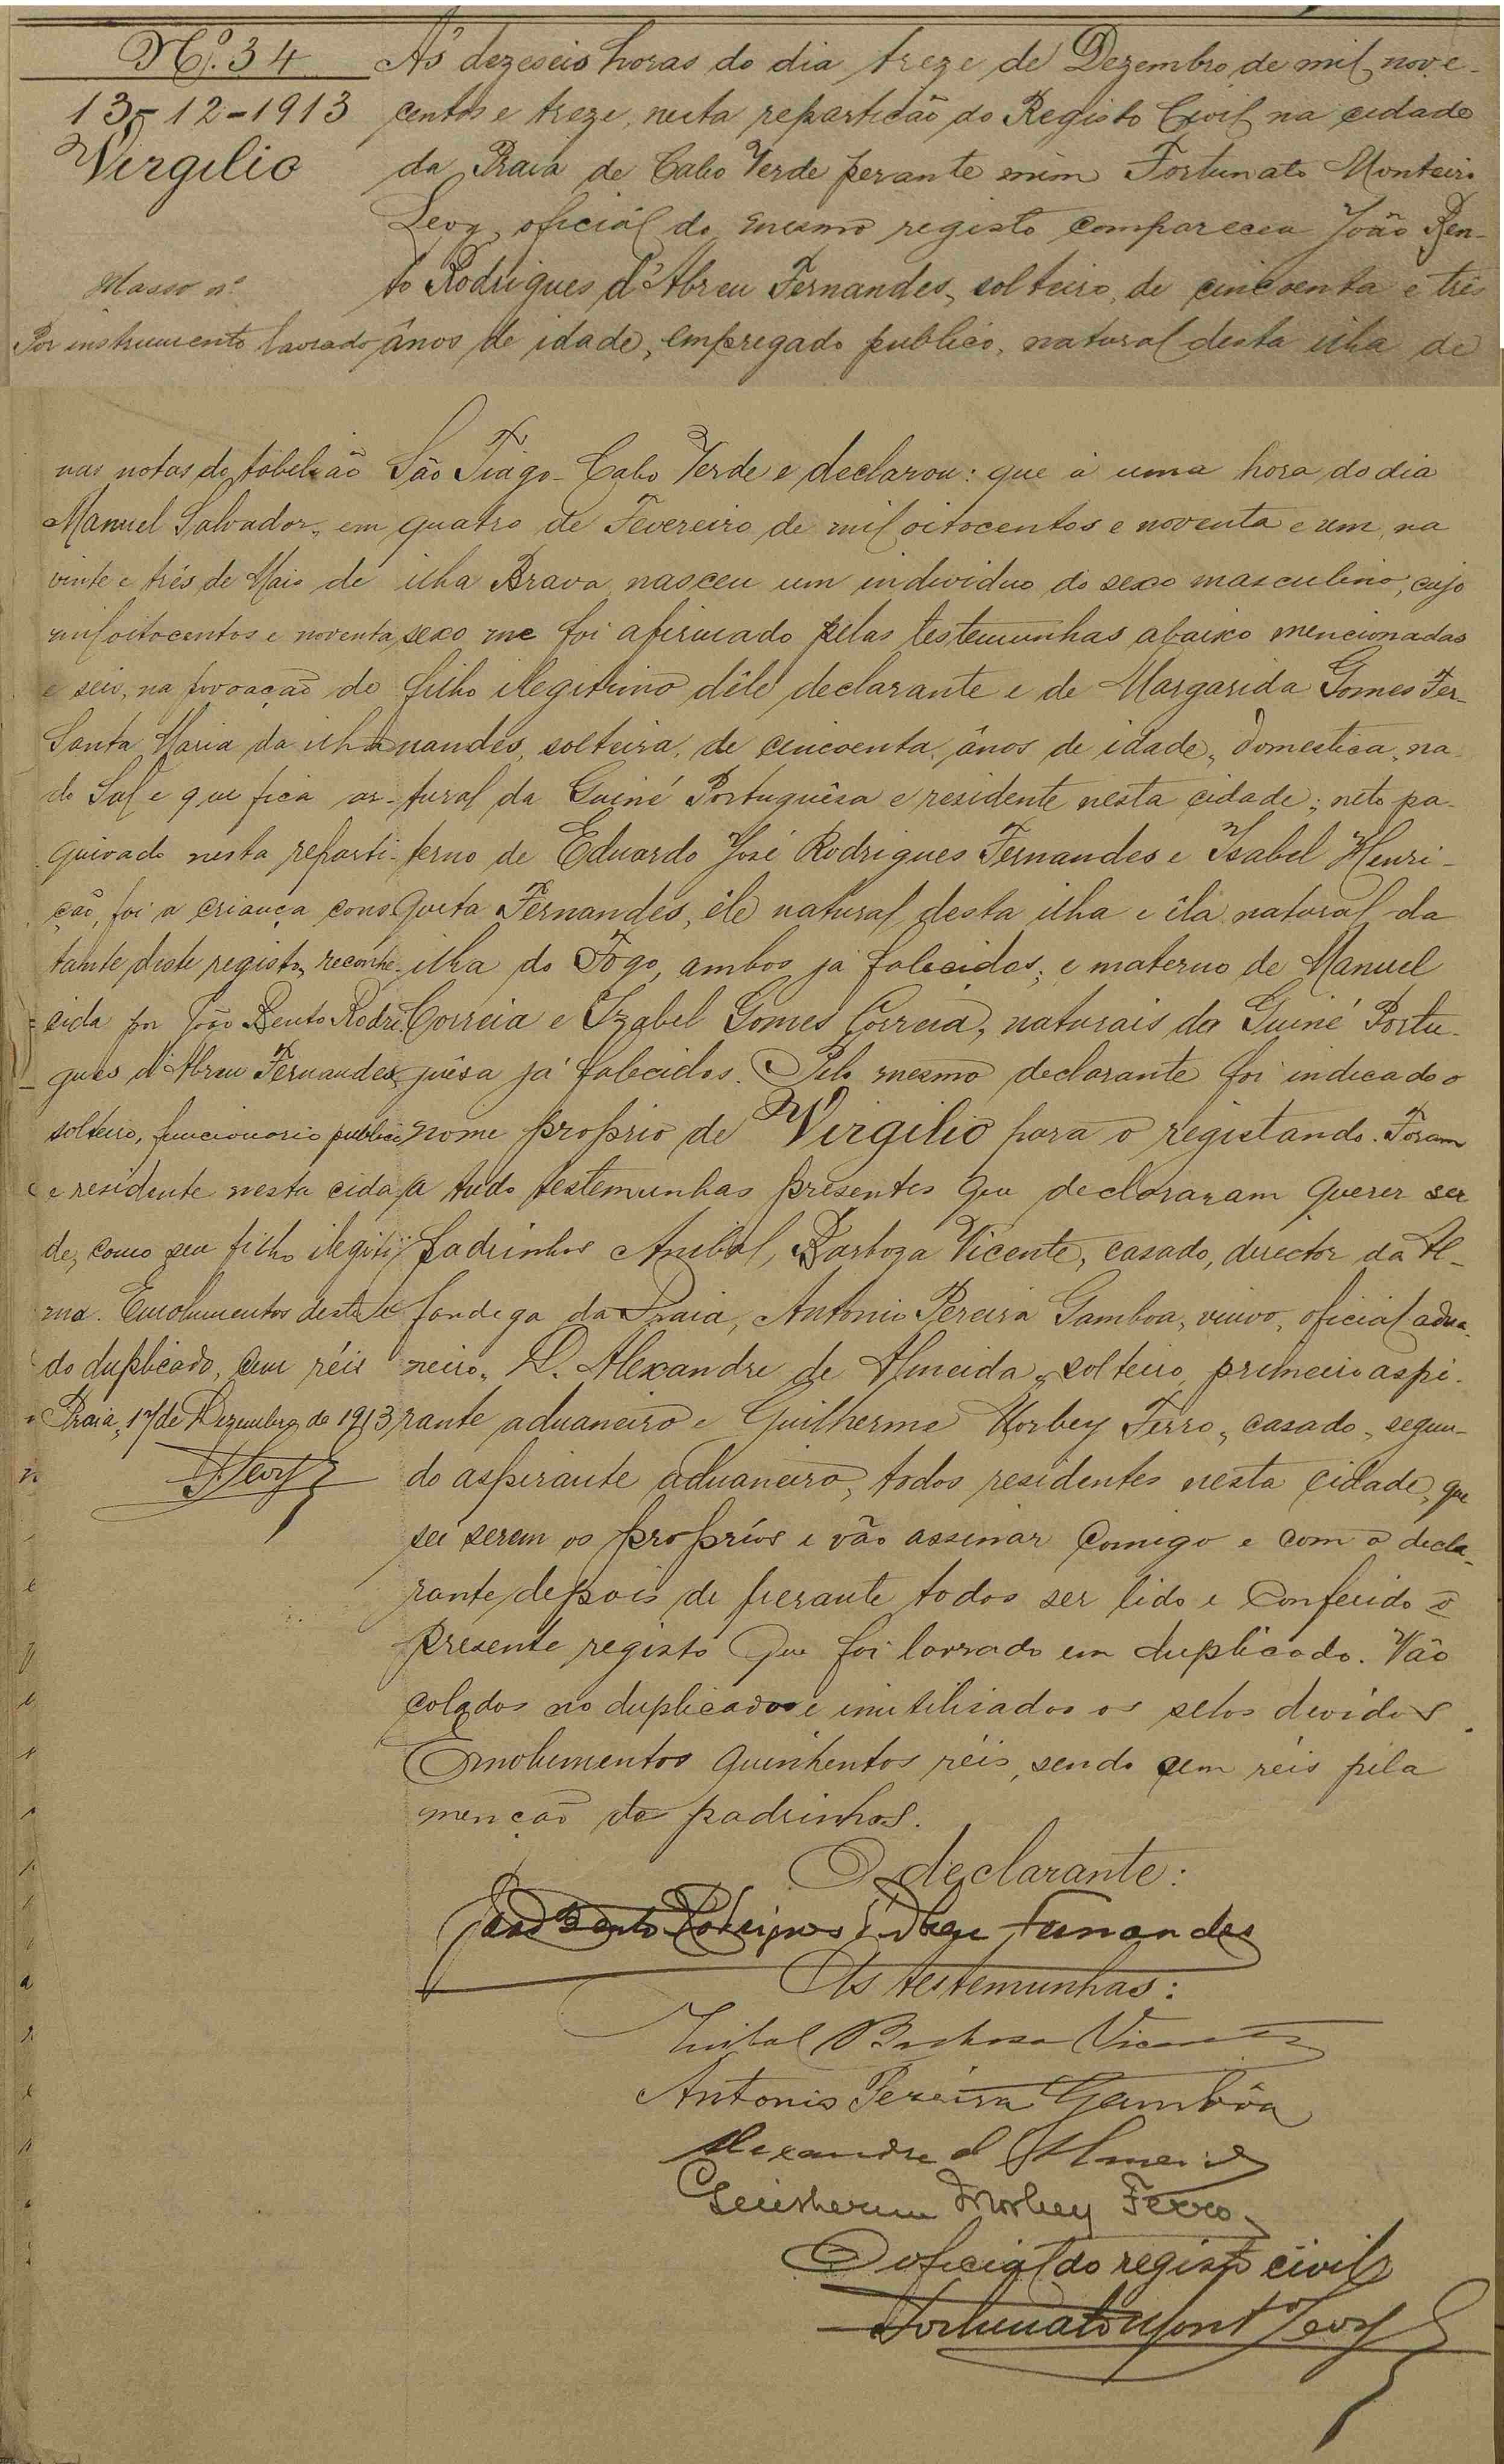 Nº. 34
13-12-1913
Virgilio
Masso nº
Por instrumento lavrado
nas notas do tabelião
Manuel Salvador, em
vinte e três de Maio de
mil oitocentos e noventa
e seis, na povoação de
Santa Maria da ilha
do Sal e que fica ar-
quivado nesta reparti-
ção, foi a criança cons-
tante deste registo, reconhe-
cida por João Bento Rodri-
gues d'Abreu Fernandes,
solteiro, funcionario publico
e residente nesta cida-
de, como seu filho ilegiti-
mo. Emolumentos deste e
do duplicado, cem réis
Praia, 17 de Dezembro de 1913
FLevy
Ás dezeseis horas do dia treze de Dezembro de mil nove-
centos e treze, nesta repartição do Registo Civil na cidade
da Praia de Cabo Verde perante mim Fortunato Monteiro
Levy, oficiál do mesmo registo compareceu João Ben-
to Rodrigues d'Abreu Fernandes, solteiro, de cincoenta e três
ânos de idade, empregado publico, natural desta ilha de
São Tiago - Cabo Verde e declarou: que á uma hora do dia
quatro de Fevereiro de mil oitocentos e noventa e um, na
ilha Brava nasceu um individuo do sexo masculino, cujo
sexo me foi afirmado pelas testemunhas abaixo mencionadas
filho ilegitimo dêle declarante e de Margarida Gomes Fer-
nandes, solteira, de cincoenta ânos de idade, domestica, na-
tural da Guiné Portuguêsa e residente nesta cidade; neto pa-
terno de Eduardo José Rodrigues Fernandes e Isabel Henri-
queta Fernandes, êle natural desta ilha e éla natural da
ilha do Fogo, ambos já falecidos; e materno de Manuel
Correia e Izabel Gomes Correia, naturais da Guiné Portu-
guêsa já falecidos. Pelo mesmo declarante foi indicado o
nome proprio de Virgilio para o registando. Foram
a tudo testemunhas presentes que declararam querer ser
padrinhos Anibal Barboza Vicente, casado, director da Al-
fandega da Praia, Antonio Pereira Gamboa, viuvo, oficial adua-
neiro, D. Alexandre de Almeida, solteiro, primeiro aspi-
rante aduaneiro e Guilherme Morbey Ferro, casado, segun-
do aspirante aduaneiro, todos residentes nesta cidade, que
sei serem os proprios e vão assinar comigo e com o decla-
rante depois de perante todos ser lido e conferido o
presente registo que foi lavrado em duplicado. Vão
colados no duplicado e inutilisados os selos devidos.
Emolumentos quinhentos réis, sendo cem réis pela
menção de padrinhos.
O declarante:
João Bento Rodrigues d'Abreu Fernandes
As testemunhas:
Anibal Barbosa Vicente
Antonio Pereira Gambôa
Alexandre d'Almeida
Guilherme Morbey Ferro
O oficial do registo civil
Fortunato Montº Levy